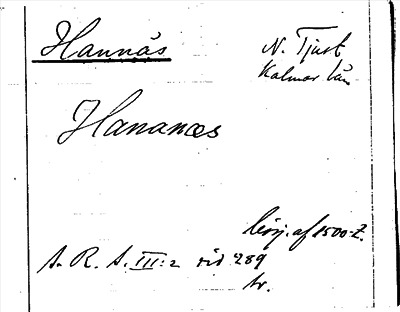 Hannäs
N. Tjust
Kalmar län
Hananæs
börj. af 1500-t.
S. R. A. III:2 sid 289
tr.